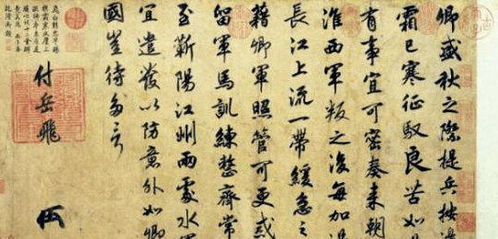 卿盛秋之際提兵按邊
霜已寒征馭良苦如
有事宜可密奏来朝
淮西軍叛之後每加過
長江上流一帶緩急之
藉卿軍照管可更戒
留軍馬訓練整齊常
至蘄陽江州兩處水軍
宜遣發以防意外如卿
國豈待多言
付岳飛